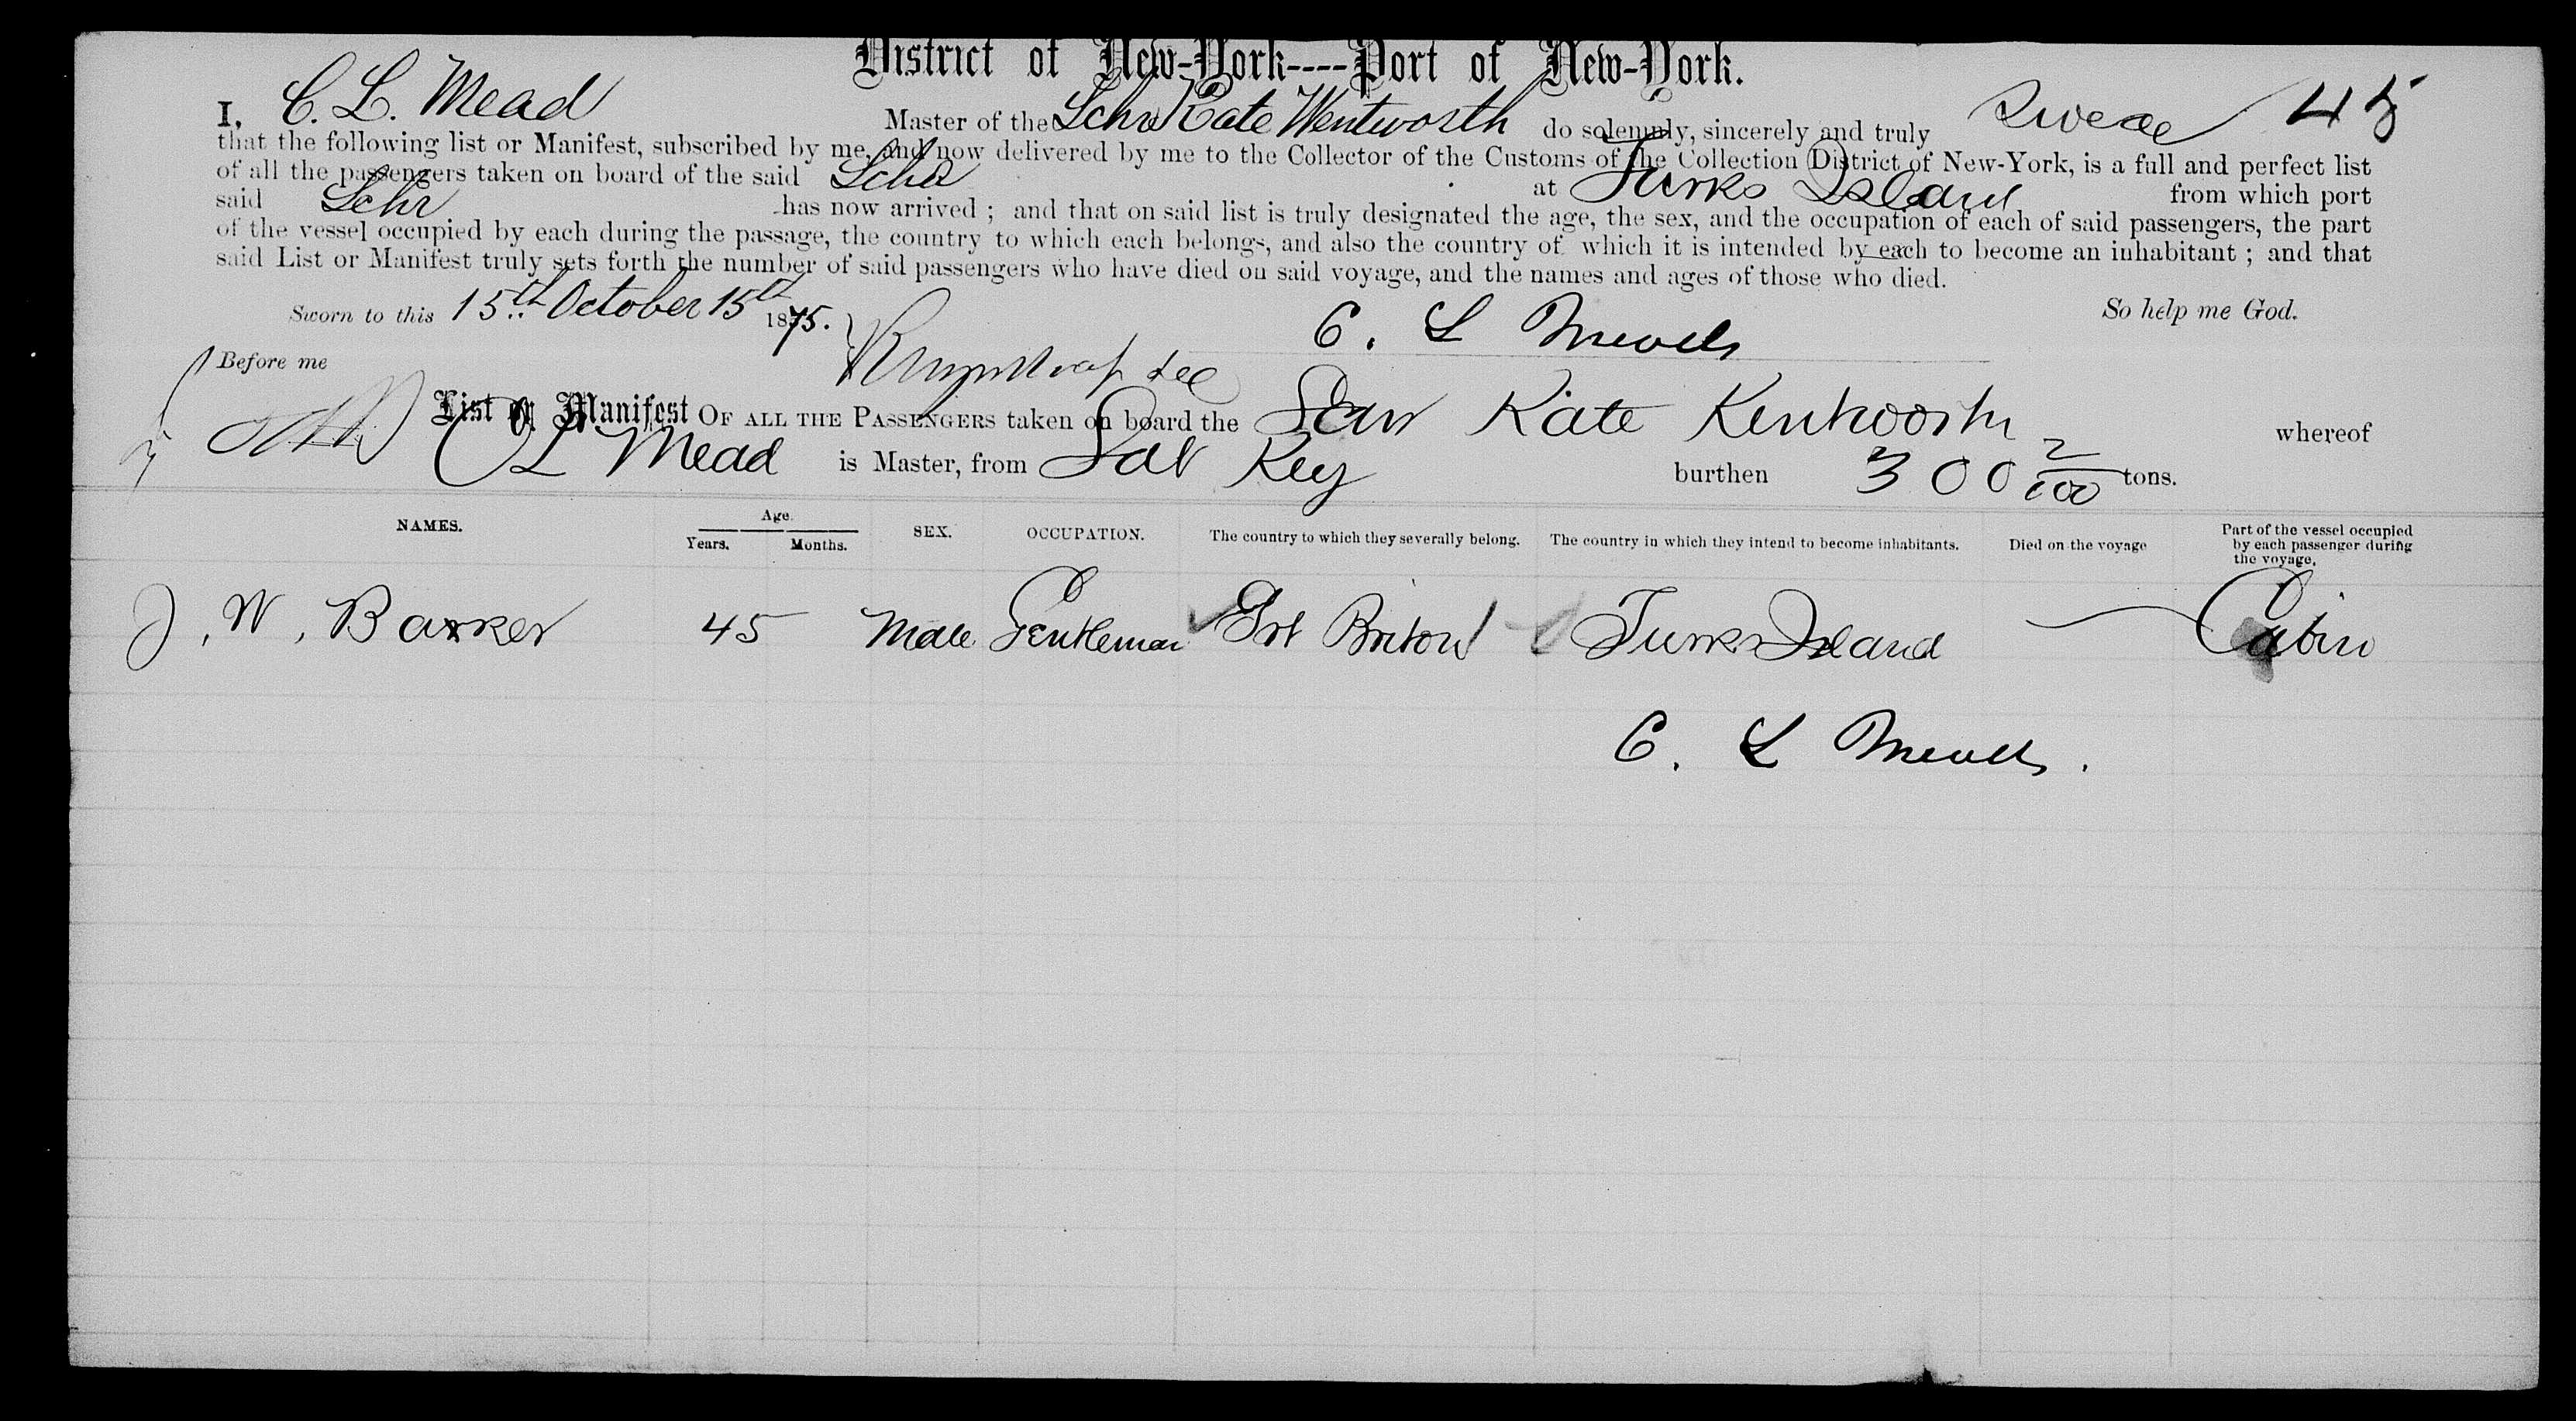 District of New-York----Port of New-York.
I, C. L. Mead Master of the Schr Kate Wentworth do solemnly, sincerely and truly Swear 45
that the following list or Manifest, subscribed by me, and now delivered by me to the Collector of the Customs of the Collection District of New-York, is a full and perfect list
of all the passengers taken on board of the said Schr at Turks Island from which port
said Schr has now arrived ; and that on said list is truly designated the age, the sex, and the occupation of each of said passengers, the part
of the vessel occupied by each during the passage, the country to which each belongs, and also the country of which it is intended by each to become an inhabitant ; and that
said List or Manifest truly sets forth the number of said passengers who have died on said voyage, and the names and ages of those who died.
Sworn to this 15th October 15th 1875. So help me God.
C. L Mead
Before me
List or Manifest OF ALL THE PASSENGERS taken on board the Kate Kentworth whereof
C L Mead is Master, from Salt Key burthen 300 2/100 tons.
NAMES. Age. Years. Months. SEX. OCCUPATION. The country to which they severally belong. The country in which they intend to become inhabitants. Died on the voyage Part of the vessel occupied by each passenger during the voyage.
J. W. Barker 45 Male Gentleman Grt Briton Turks Island Cabin
C. L Mead.